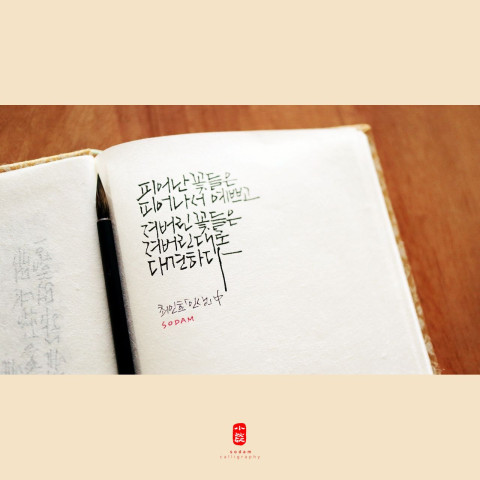 피어난 꽃들은
피어나서 예쁘고
져버린 꽃들은
져버린대로
대견하다
SODAM
sodam
calligraphy